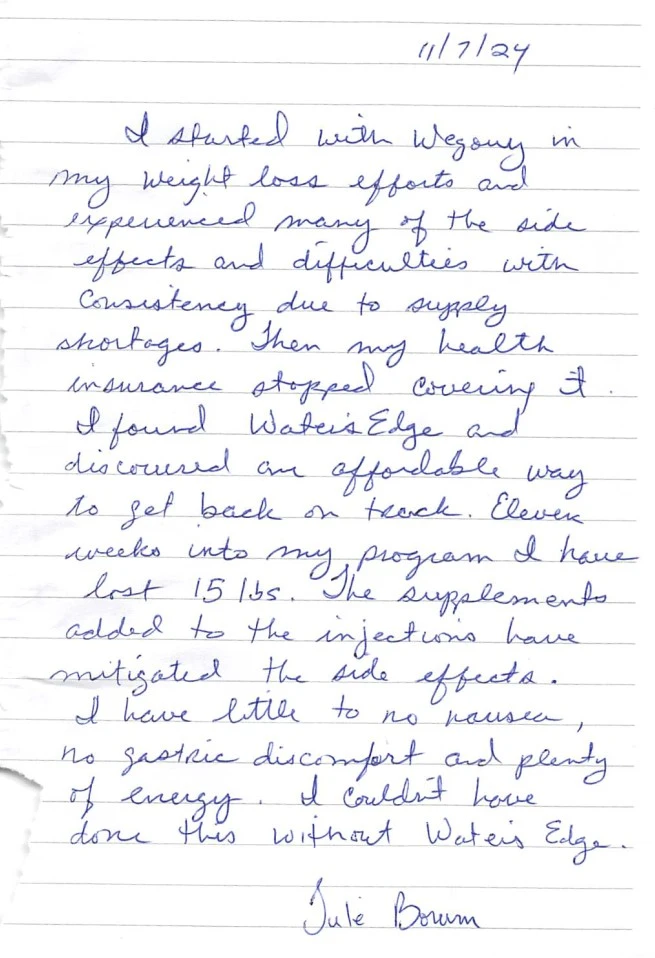 11/7/24
I started with Wegovy in
my weight loss efforts and
experienced many of the side
effects and difficulties with
Consistency due to supply
shortages. Then my health
insurance stopped covering it.
I found Water's Edge and
discovered an affordable way
to get back on track. Eleven
weeks into my program I have
lost 15 lbs. The supplements
added to the injections have
mitigated the side effects.
I have little to no nausea,
no gastric discomfort and plenty
of energy. I couldn't have
done this without Water's Edge.
Julé